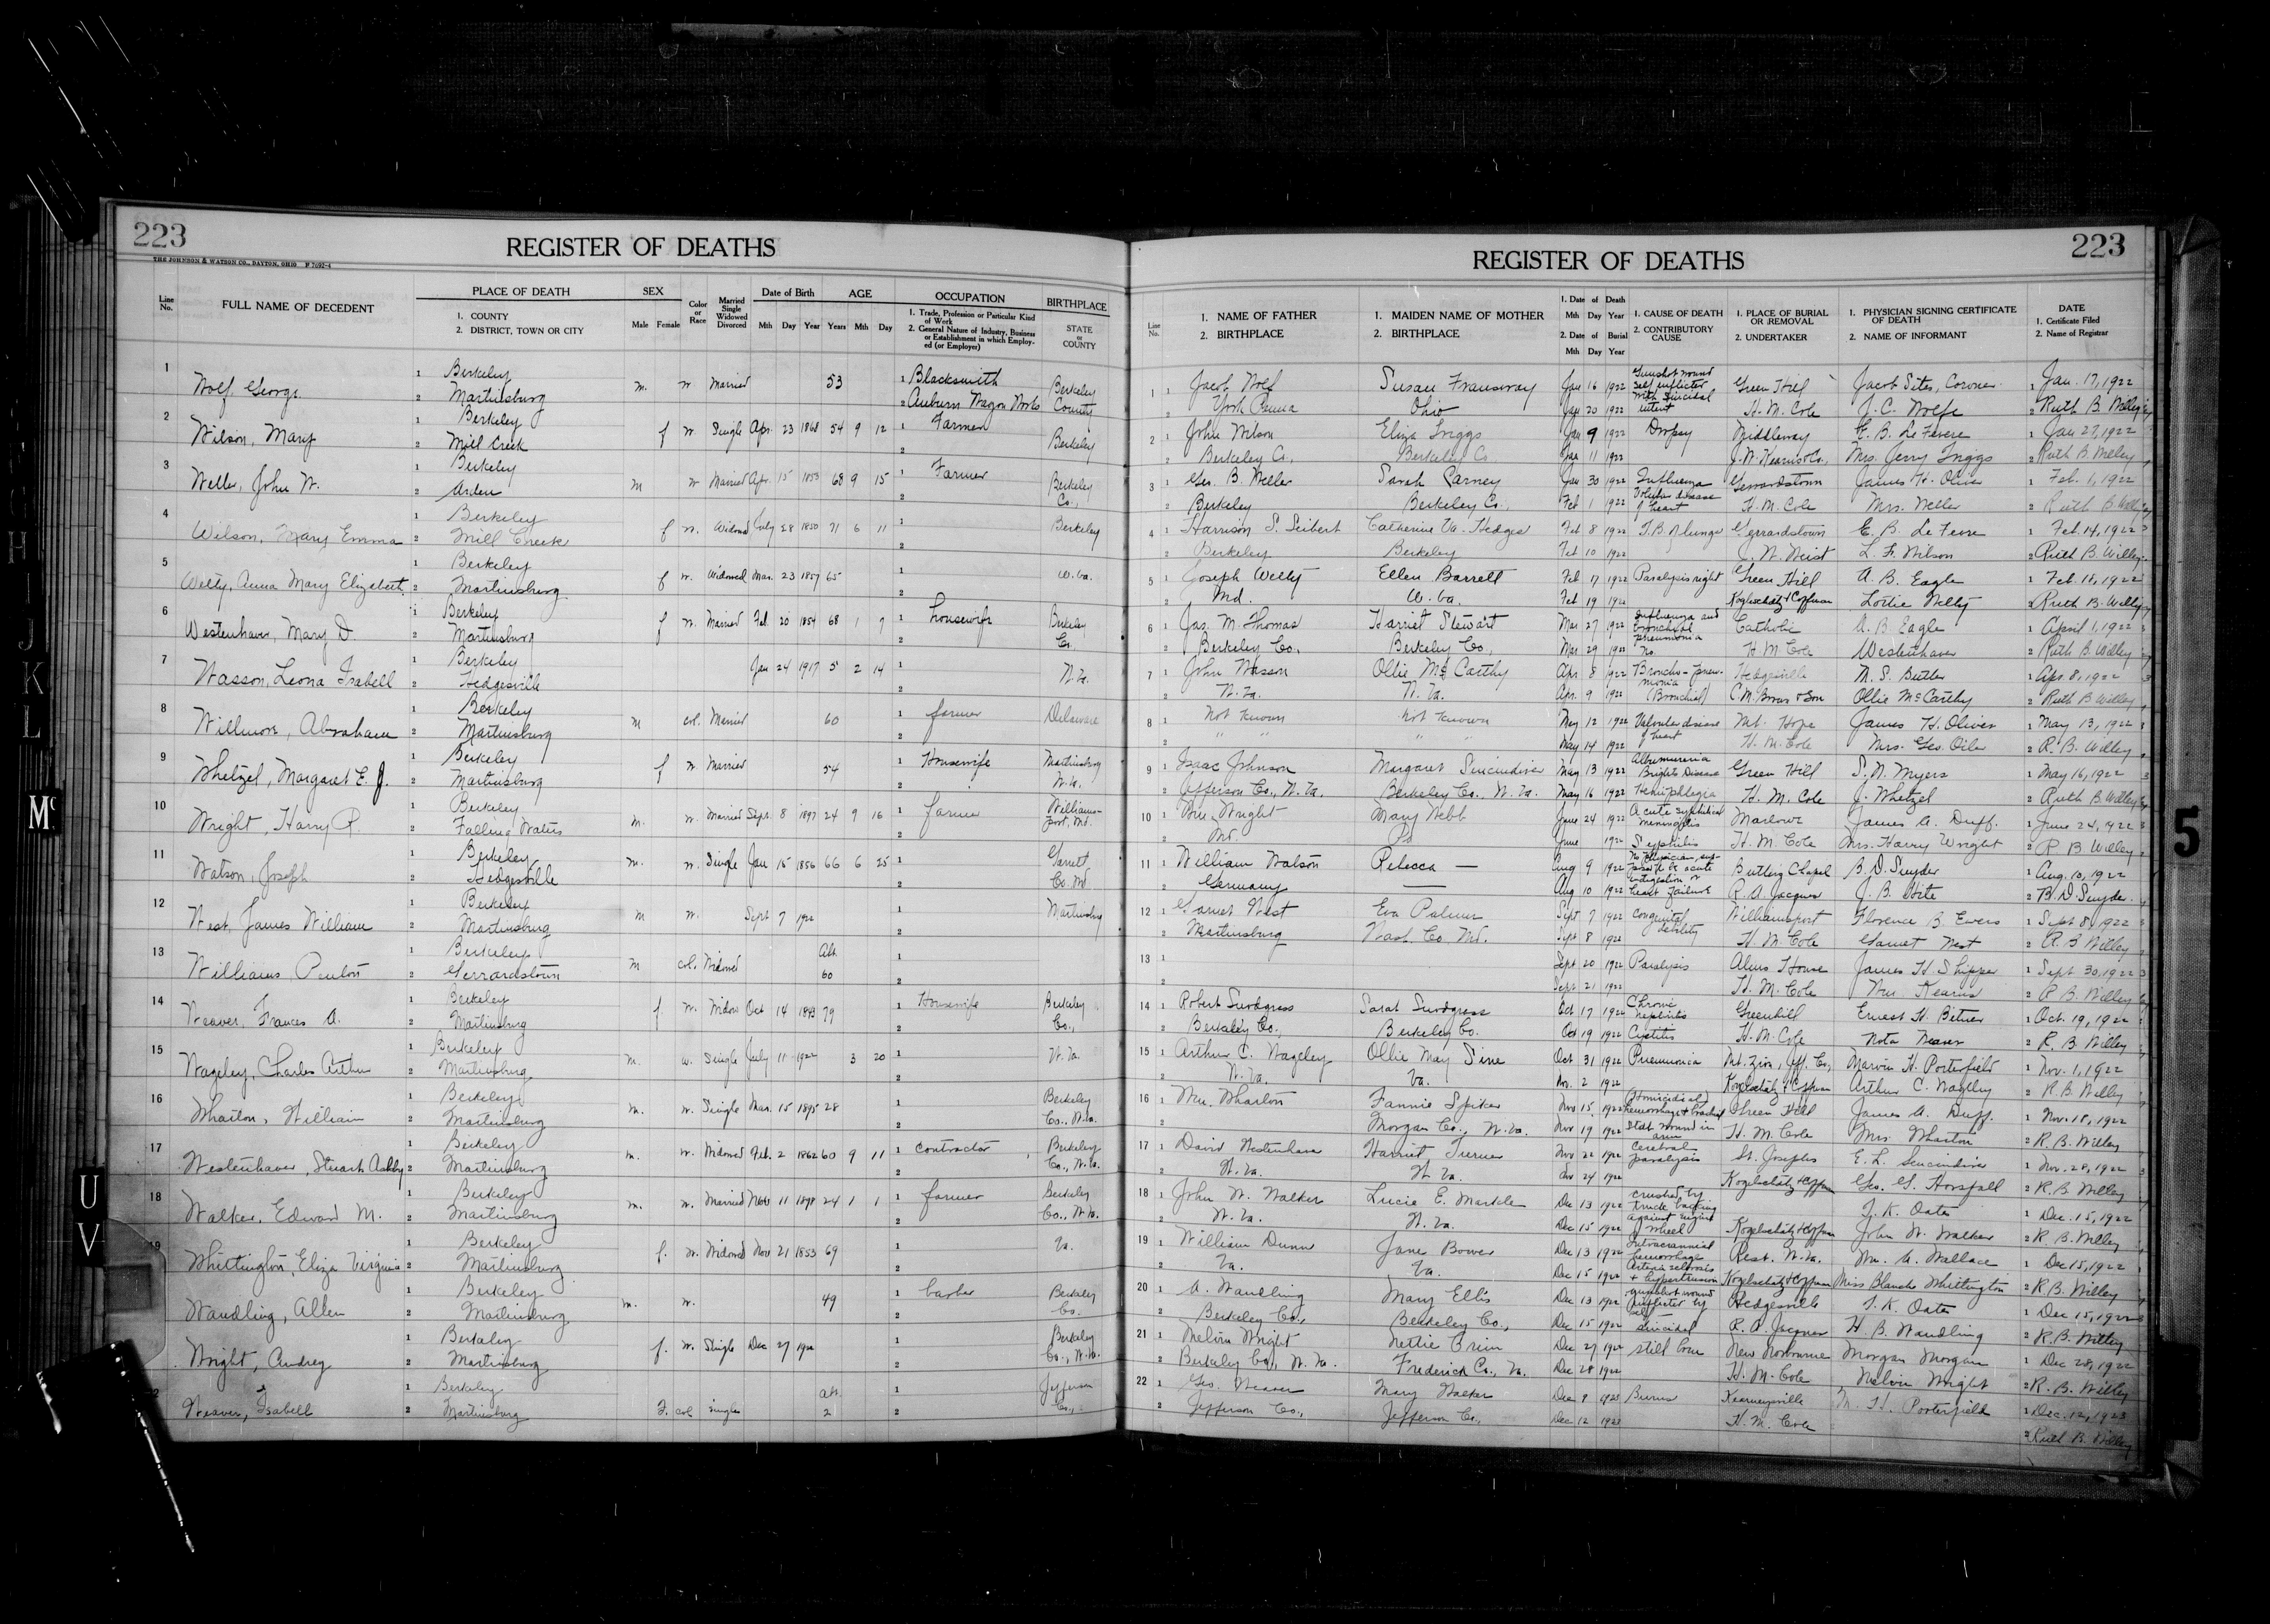 223
REGISTER OF DEATHS
THE JOHNSON & WATSON CO., DAYTON, OHIO
Line No.
FULL NAME OF DECEDENT
PLACE OF DEATH
1. COUNTY
2. DISTRICT, TOWN OR CITY
SEX
Male Female
Color or Race
Married Single Widowed Divorced
Date of Birth
Mth Day Year
AGE
Years Mth Day
OCCUPATION
1. Trade, Profession or Particular Kind of Work
2. General Nature of Industry, Business or Establishment in which Employed (or Employer)
BIRTHPLACE
STATE or COUNTY
1 Wolf, George 1 Berkeley 2 Martinsburg m. w Married 53 1 Blacksmith 2 Auburn Wagon Works Berkeley County
2 Wilson, Mary 1 Berkeley 2 Mill Creek f w. Single Apr. 23 1868 54 9 12 1 Farmer 2 Berkeley
3 Weller, John W. 1 Berkeley 2 Arden m w Married Apr. 15 1853 68 9 15 1 Farmer 2 Berkeley Co.,
4 Wilson, Mary Emma 1 Berkeley 2 Mill Creek f w. Widowed July 28 1850 71 6 11 1 2 Berkeley
5 Welty, Anna Mary Elizabeth 1 Berkeley 2 Martinsburg f w. Widowed Mar. 23 1857 65 1 2 W. Va.
6 Westenhaver, Mary D. 1 Berkeley 2 Martinsburg f w. Married Feb 20 1854 68 1 7 1 housewife 2 Berkeley Co.
7 Wasson, Leona Isabell 1 Berkeley 2 Hedgesville Jan 24 1917 5 2 14 1 2 W. Va.
8 Willmore, Abraham 1 Berkeley 2 Martinsburg m col. Married 60 1 farmer 2 Delaware
9 Whetzel, Margaret E. J. 1 Berkeley 2 Martinsburg f w Married 54 1 Housewife 2 Martinsburg W. Va.
10 Wright, Harry P. 1 Berkeley 2 Falling Waters m. w. Married Sept. 8 1897 24 9 16 1 farmer 2 Williamsport, Md.
11 Watson, Joseph 1 Berkeley 2 Hedgesville m. w. Single Jan 15 1856 66 6 25 1 2 Garrett Co. Md
12 West, James William 1 Berkeley 2 Martinsburg m w. Sept 7 1922 1 2 Martinsburg
13 Williams, 1 Berkeley 2 Gerrardstown m col. Widowed Abt. 60 1 2
14 Weaver, Frances A. 1 Berkeley 2 Martinsburg f. w. Widow Oct 14 1843 79 1 Housewife 2 Berkeley Co.,
15 Wageley, Charles Arthur 1 Berkeley 2 Martinsburg m. w. Single July 11 1922 3 20 1 2 W. Va.
16 Wharton, William 1 Berkeley 2 Martinsburg m. w. Single Mar. 15 1895 28 1 2 Berkeley Co., W. Va.
17 Westenhaver, Stuart Ashby 1 Berkeley 2 Martinsburg m. w. Widowed Feb. 2 1862 60 9 11 1 contractor 2 Berkeley Co., W. Va.
18 Walker, Edward M. 1 Berkeley 2 Martinsburg m. w. Married Nov 11 1898 24 1 1 1 farmer 2 Berkeley Co., W. Va.
19 Whittington, Eliza Virginia 1 Berkeley 2 Martinsburg f. w. Widowed Nov 21 1853 69 1 2 Va.
Waudling, Allen 1 Berkeley 2 Martinsburg m. w. 49 1 barber 2 Berkeley Co.
Wright, Audrey 1 Berkeley 2 Martinsburg f. w. Single Dec 27 1922 1 2 Berkeley Co., W. Va.
Weaver, Isabell 1 Berkeley 2 Martinsburg F. col single abt. 2 1 2 Jefferson Co.,
223
REGISTER OF DEATHS
Line No.
1. NAME OF FATHER
2. BIRTHPLACE
1. MAIDEN NAME OF MOTHER
2. BIRTHPLACE
1. Date of Death
Mth Day Year
2. Date of Burial
Mth Day Year
1. CAUSE OF DEATH
2. CONTRIBUTORY CAUSE
1. PLACE OF BURIAL OR REMOVAL
2. UNDERTAKER
1. PHYSICIAN SIGNING CERTIFICATE OF DEATH
2. NAME OF INFORMANT
DATE
1. Certificate Filed
2. Name of Registrar
1 1 Jacob Wolf Susan Jan 16 1922 Gunshot wound self inflicted with suicidal intent Green Hill Jacob Sites, Coroner 1 Jan. 17, 1922
2 York Penna Ohio Jan 20 1922 H. M. Cole J. C. Wolfe 2 Ruth B. Willey
2 1 John Wilson Eliza Griggs Jan 9 1922 Dropsy Middleway E. B. Le Fevere 1 Jan 27, 1922
2 Berkeley Co., Berkeley Co Jan 11 1922 Mrs. Jerry Griggs 2 Ruth B. Willey
3 1 Geo. B. Weller Sarah Jan 30 1922 Influenza Gerrardstown James H. Oliver 1 Feb. 1, 1922
2 Berkeley Berkeley Co., Feb 1 1922 Valvular disease of heart H. M. Cole Mrs. Weller 2 Ruth B. Willey
4 1 Harrison S. Seibert Catherine Va. Hedges Feb 8 1922 T.B. of lungs Gerrardstown E. B. Le Fevre 1 Feb. 14, 1922
2 Berkeley Berkeley Feb 10 1922 L. F. Wilson 2 Ruth B. Willey
5 1 Joseph Welty Ellen Barrett Feb 17 1922 Paralysis right Green Hill A. B. Eagle 1 Feb. 18, 1922
2 Md. W. Va. Feb 19 1922 Kogelschatz & Coffman Lottie Welty 2 Ruth B. Willey
6 1 Jas. M. Thomas Harriet Stewart Mar 27 1922 Influenza and bronchial pneumonia Catholic A. B. Eagle 1 April 1, 1922
2 Berkeley Co., Berkeley Co., Mar. 29 1922 No. H. M. Cole Westenhaver 2 Ruth B. Willey
7 1 John Wasson Ollie McCarthy Apr. 8 1922 Broncho-pneumonia Hedgesville M. S. Butler 1 Apr. 8, 1922
2 W. Va. W. Va. Apr. 9 1922 (Bronchial) C. M. Brown & Son Ollie McCarthy 2 Ruth B. Willey
8 1 Not Known Not Known May 12 1922 Valvular disease of heart Mt. Hope James H. Oliver 1 May 13, 1922
2 " " " " May 14 1922 H. M. Cole Mrs. Geo. Oiler 2 R. B. Willey
9 1 Isaac Johnson Margaret Sencindiver May 13 1922 Albumenuria Brights Disease Green Hill S. N. Myers 1 May 16, 1922
2 Jefferson Co., W. Va. Berkeley Co. W. Va. May 16 1922 Hemiphlegia H. M. Cole J. Whetzel 2 Ruth B. Willey
10 1 Wm. Wright Mary Webb June 24 1922 Acute syphilitical meningitis Marlowe James A. Duff. 1 June 24, 1922
2 Md. June 1922 Syphilis H. M. Cole Mrs. Harry Wright 2 R B Willey
11 1 William Watson Rebecca — Aug 9 1922 No Physician, supposed to be acute indigestion or heart failure Butlers Chapel B. D. Snyder 1 Aug. 10, 1922
2 Germany — Aug 10 1922 R. A. Jacques J. B. Hite 2 B. D. Snyder.
12 1 Garnet West Eva Palmer Sept. 7 1922 Congenital debility Williamsport Florence B. Ewers 1 Sept 8, 1922
2 Martinsburg Wash. Co Md. Sept 8 1922 H. M. Cole Garnet West 2 R. B Willey
13 1 Sept 20 1922 Paralysis Alms House James H. Shipper 1 Sept 30, 1922
2 Sept 21 1922 H. M. Cole Wm. Kearns 2 R. B. Willey
14 1 Robert Snodgrass Sarah Snodgrass Oct 17 1922 Chronic nephritis Greenhill Ernest H. Bitner 1 Oct. 19, 1922
2 Berkeley Co., Berkeley Co. Oct 19 1922 Cystitis H. M. Cole Nota Weaver 2 R. B. Willey
15 1 Arthur C. Wageley Ollie May Sine Oct 31 1922 Pneumonia Mt. Zion, Jeff. Co., Marvin H. Porterfield 1 Nov. 1, 1922
2 W. Va. Va. Nov. 2 1922 Kogelschatz & Coffman Arthur C. Wageley 2 R. B. Willey
16 1 Wm. Wharton Fannie Spiker Nov 15, 1922 (Homicidal) hemorrhage & brachial Green Hill James A. Duff. 1 Nov. 18, 1922
2 Morgan Co., W. Va. Nov 19 1922 Stab wound in arm H. M. Cole Mrs. Wharton 2 R. B. Willey
17 1 David Westenhaver Harriet Turner Nov 22 1922 Cerebral paralysis St. Josephs E. L. Sencindiver 1 Nov. 28, 1922
2 W. Va. W. Va. Nov 24 1922 Kogelschatz & Coffman Geo. G. Horsfall 2 R. B. Willey
18 1 John W. Walker Lucie E. Markle Dec 13 1922 crushed by truck backing against wheel T. K. Oates 1 Dec. 15, 1922
2 W. Va. W. Va. Dec 15 1922 Kogelschatz & Coffman John W. Walker 2 R. B. Willey
19 1 William Dunn Jane Bower Dec 13 1922 Intracrannial hemorrhage Rest. W. Va. Wm. A. Wallace 1 Dec 15, 1922
2 Va. Va. Dec 15 1922 Arteria sclerosis & hypertension Kogelschatz & Coffman Miss Blanche Whittington 2 R. B. Willey
20 1 A. Waudling Mary Ellis Dec 13 1922 gunshot wound inflicted by self Hedgesville T. K. Oates 1 Dec 15, 1922
2 Berkeley Co., Berkeley Co., Dec 15 1922 suicidal R. A. Jacques H. B. Waudling 2 R. B. Willey
21 1 Melvin Wright Nettie Crim Dec 27 1922 still born New Norbourne Morgan Morgan 1 Dec 28, 1922
2 Berkeley Co., W. Va. Frederick Co., Va. Dec 28 1922 H. M. Cole Melvin Wright 2 R. B. Willey
22 1 Geo. Weaver Mary Walker Dec 9 1923 Burns Kearneysville M. H. Porterfield 1 Dec. 12, 1923
2 Jefferson Co., Jefferson Co., Dec 12 1923 H. M. Cole 2 Ruth B. Willey
H
J
K
L
Mc
U
V
5